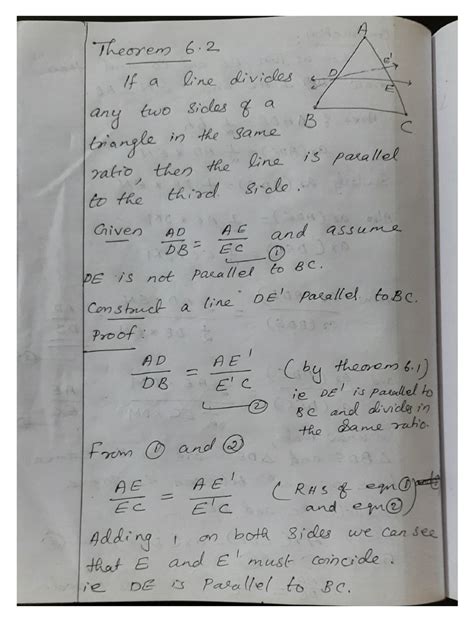 Theorem 6.2
If a line divides
any two sides of a
triangle in the same
ratio, then the line is parallel
to the third side.
A
D
E'
E
B
C
Given AD/DB = AE/EC and assume
①
DE is not parallel to BC.
Construct a line DE' parallel to BC.
Proof:
AD/DB = AE'/E'C (by theorem 6.1)
②
ie DE' is parallel to
BC and divides in
the same ratio.
From ① and ②
AE/EC = AE'/E'C (RHS of eqn ①
and eqn ②)
Adding 1 on both sides we can see
that E and E' must coincide.
ie DE is parallel to BC.